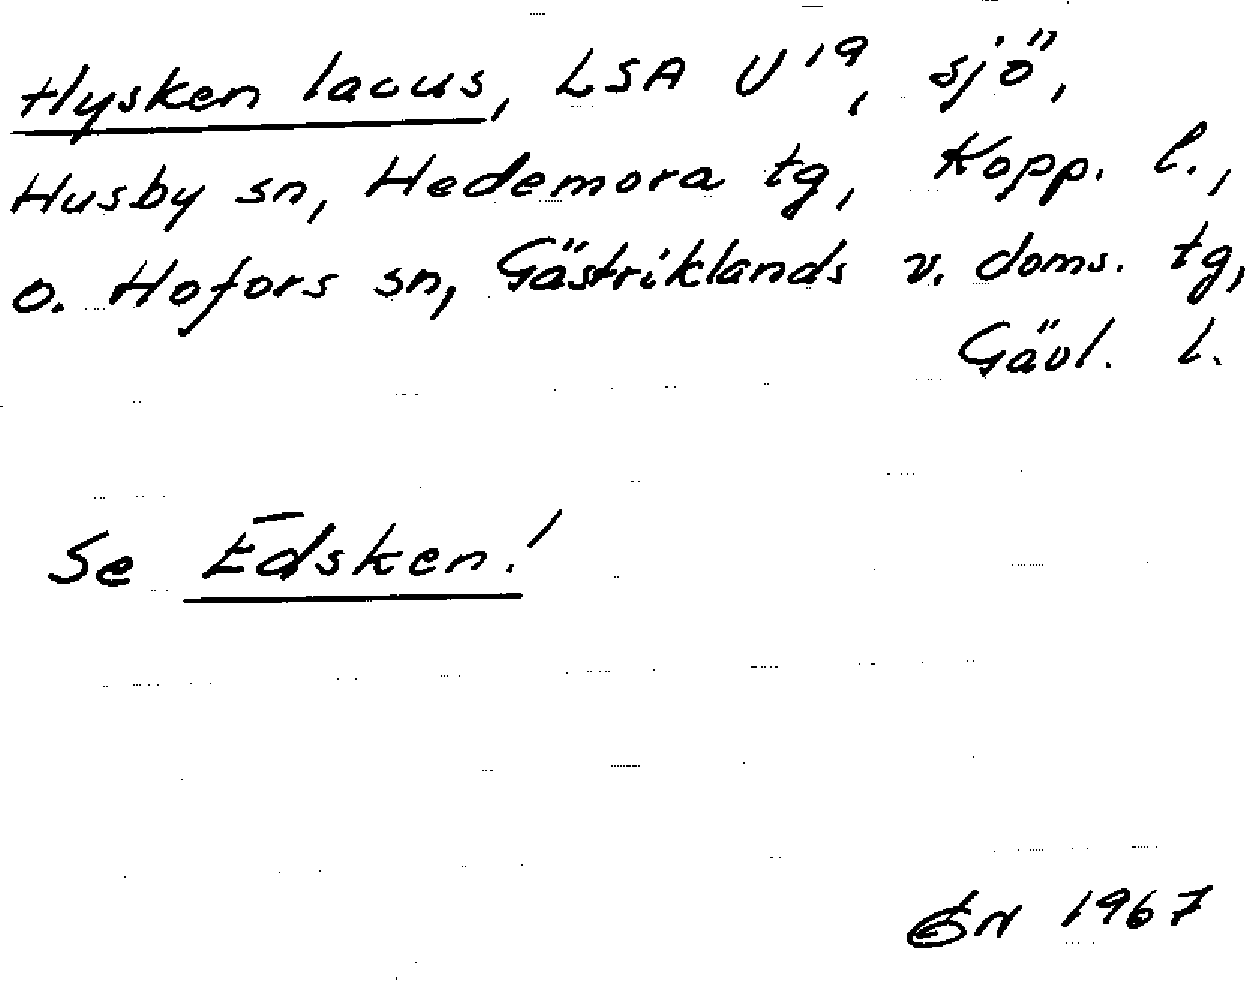 Hysken lacus, LSA U 19, sjö,
Husby sn, Hedemora tg, Kopp. l.,
o. Hofors sn, Gästriklands v. doms. tg,
Gävl. l.
Se Edsken!
1967